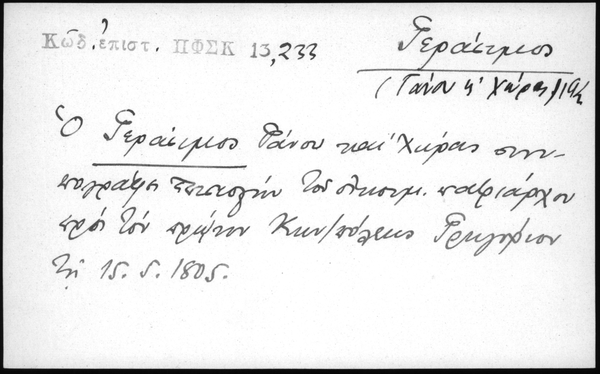 Κῶδ. ἐπιστ. ΠΦΣΚ 13,233
Γεράσιμος
(Γάνου κ' Χώρας)
Ὁ Γεράσιμος Γάνου καὶ Χώρας συνυ-
πογράφει ἐπιστολὴν τοῦ οἰκουμ. πατριάρχου
πρὸς τὸν πρώην Κων/πόλεως Γρηγόριον
τῇ 15. 5. 1805.